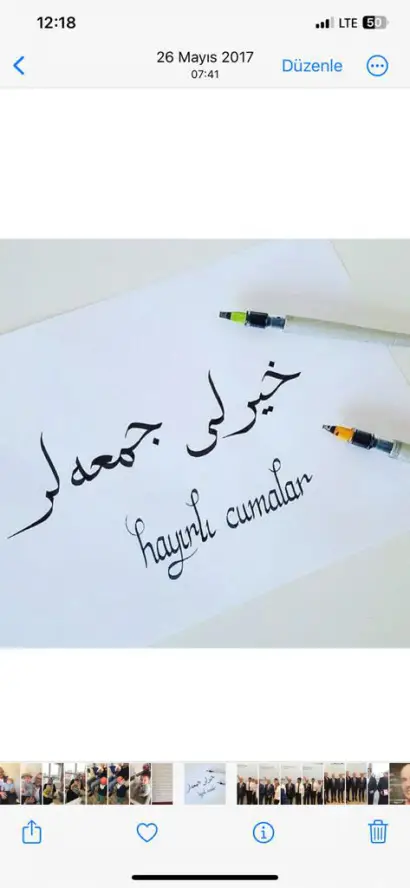 12:18
LTE 50
26 Mayıs 2017
07:41
Düzenle
خيرلى جمعه‌لر
hayırlı cumalar